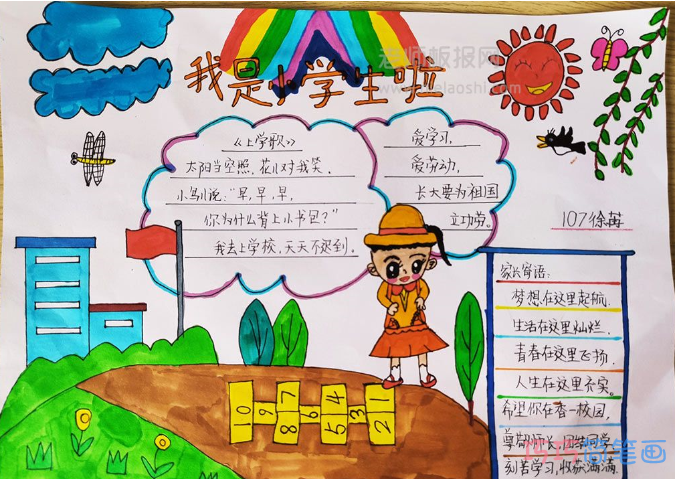 我是小学生啦
老师板报网
《上学歌》
太阳当空照，花儿对我笑。
小鸟说："早，早，早，
你为什么背上小书包？"
我去上学校，天天不迟到。
爱学习，
爱劳动，
长大要为祖国
立功劳。
107徐苒
家长寄语：
梦想在这里起航，
生活在这里灿烂，
青春在这里飞扬，
人生在这里充实。
希望你在香一校园，
尊敬师长，团结同学，
刻苦学习，收获满满。
简笔画
10 9 8 7 6 5 4 3 2 1